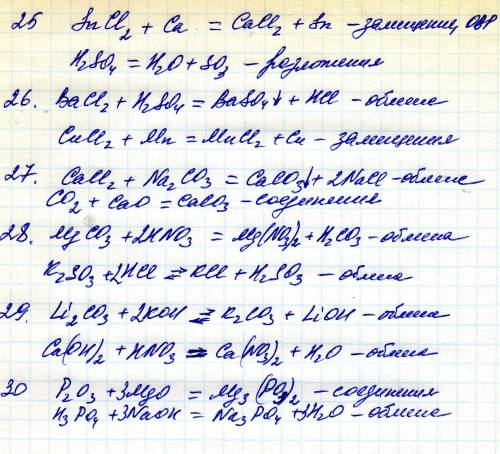 25 SnCl₂ + Ca = CaCl₂ + Sn – замещения, ОВР
H₂SO₄ = H₂O + SO₃ – разложения
26. BaCl₂ + H₂SO₄ = BaSO₄↓ + HCl – обмена
CuCl₂ + Mn = MnCl₂ + Cu – замещения
27. CaCl₂ + Na₂CO₃ = CaCO₃↓ + 2NaCl – обмена
CO₂ + CaO = CaCO₃ – соединения
28. MgCO₃ + 2HNO₃ = Mg(NO₃)₂ + H₂CO₃ – обмена
K₂SO₃ + 2HCl ⇄ KCl + H₂SO₃ – обмена
29. Li₂CO₃ + 2KOH ⇄ K₂CO₃ + LiOH – обмена
Ca(OH)₂ + HNO₃ = Ca(NO₃)₂ + H₂O – обмена
30 P₂O₃ + 3MgO = Mg₃(PO₃)₂ – соединения
H₃PO₄ + 3NaOH = Na₃PO₄ + 3H₂O – обмена